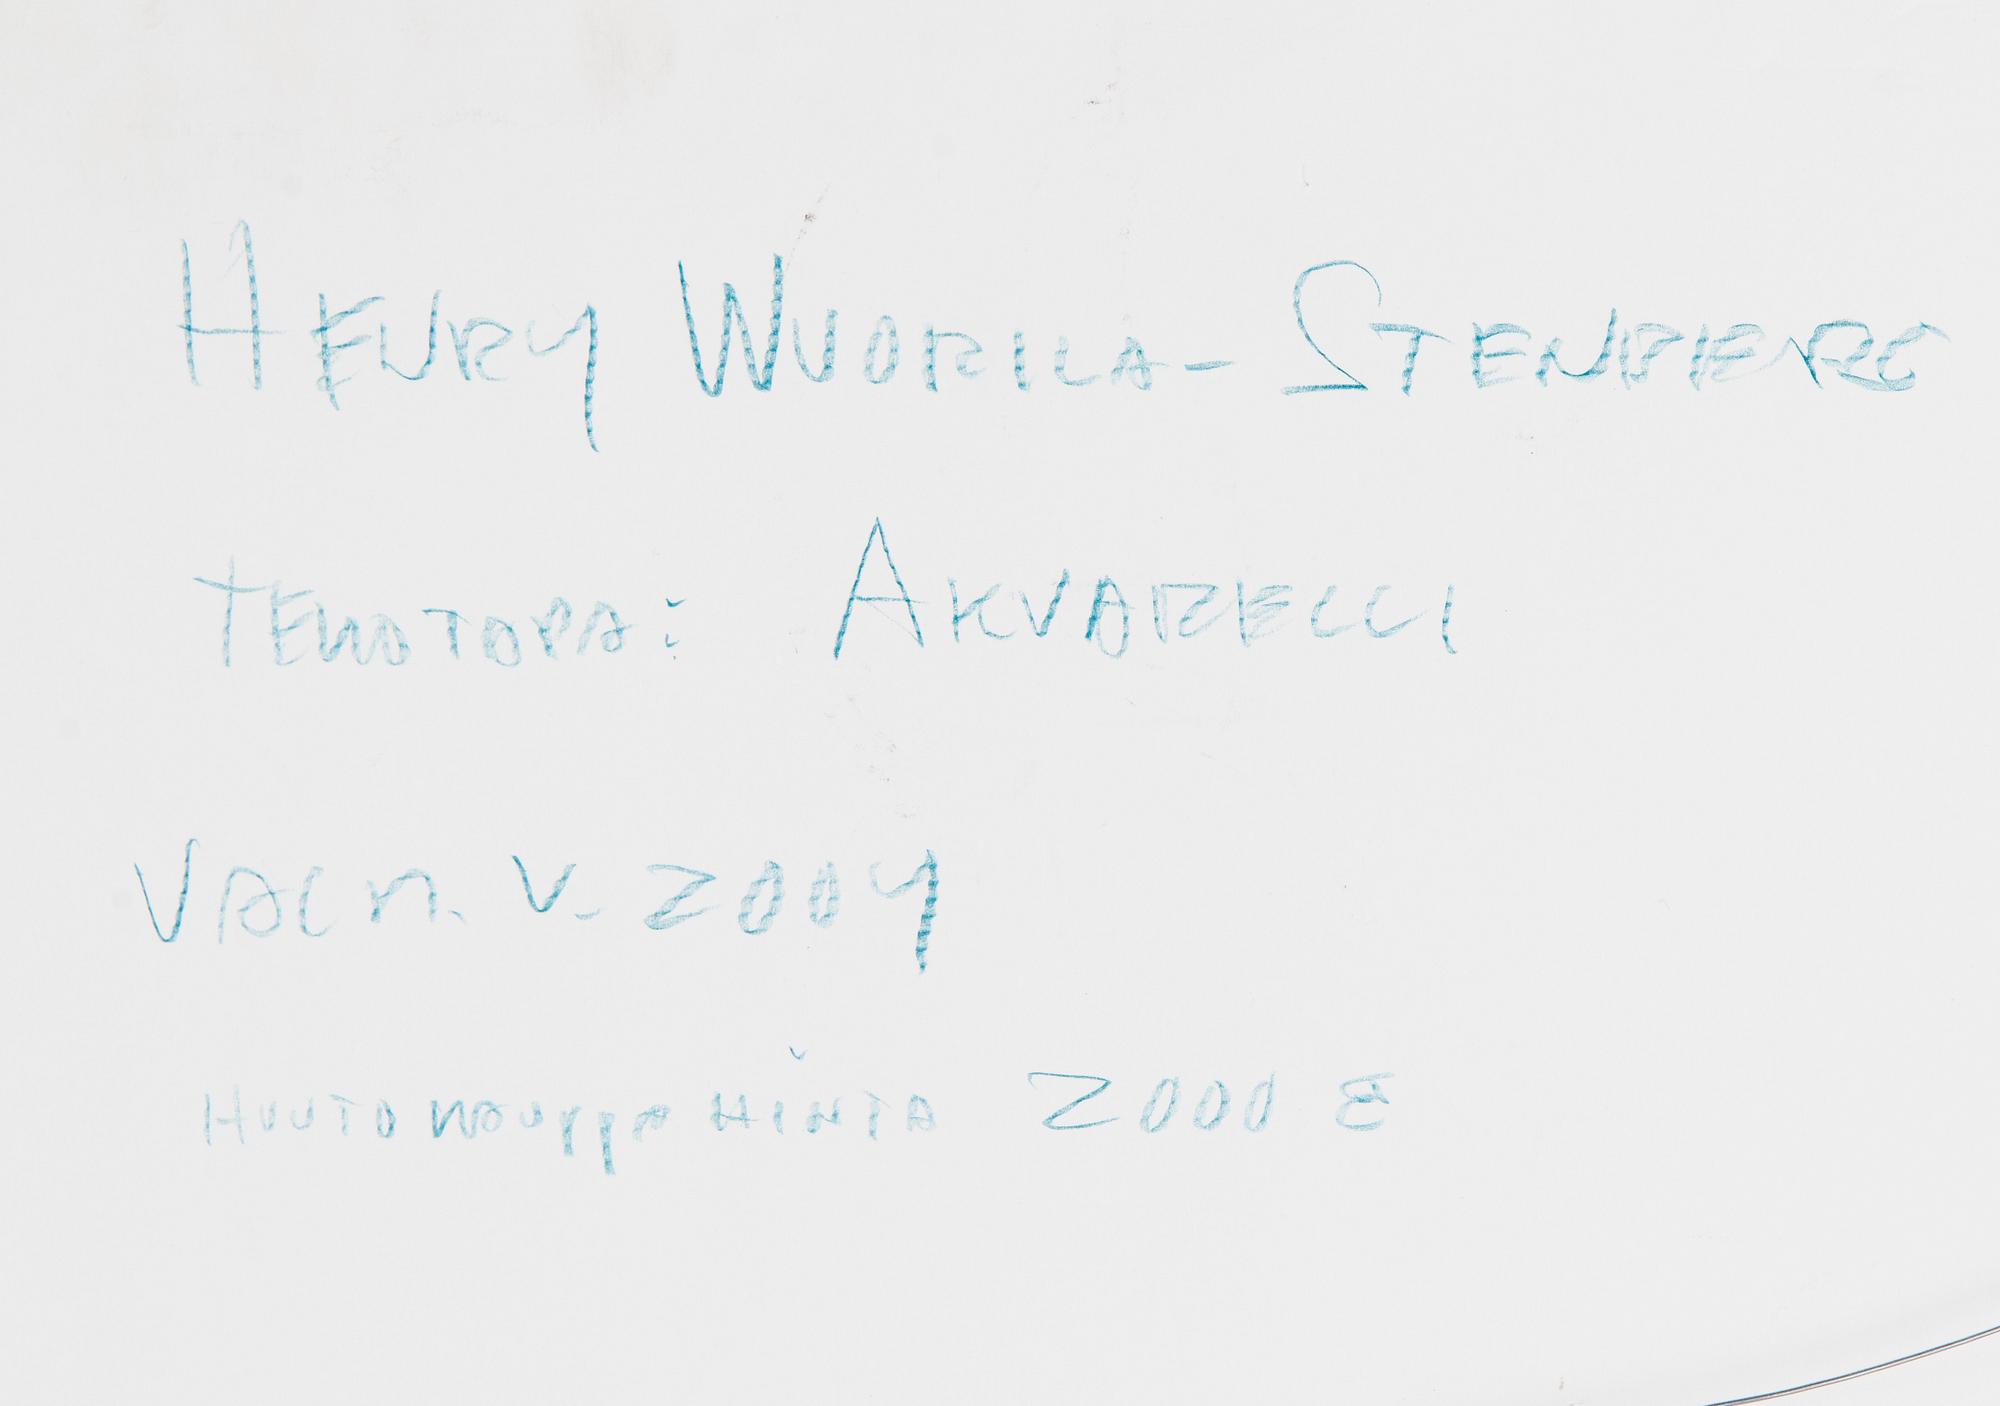 HENRY WUORILA-STENBERG
TEKOTAPA: AKVARELLI
VALM. V. 2004
HUUTOKAUPPAHINTA 2000 €